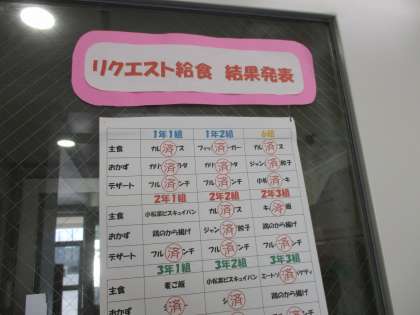 リクエスト給食 結果発表
1年1組 1年2組 6組
主食 カル 済 ス フィッシ 済 ーガー カル 済 ス
おかず 済 済 ジャン 済 餃子
デザート フル 済 ンチ フル 済 ンチ 小松 済 キ
2年1組 2年2組 2年3組
主食 小松菜ビスキュイパン カル 済 ス キ 済 飯
おかず 鶏のから揚げ ジャン 済 餃子 鶏のから揚げ
デザート フル 済 ンチ フル 済 ンチ フル 済 ンチ
3年1組 3年2組 3年3組
主食 麦ご飯 小松菜ビスキュイパン ミートソ 済 ゲティ
おかず 済 済 鶏のから揚げ